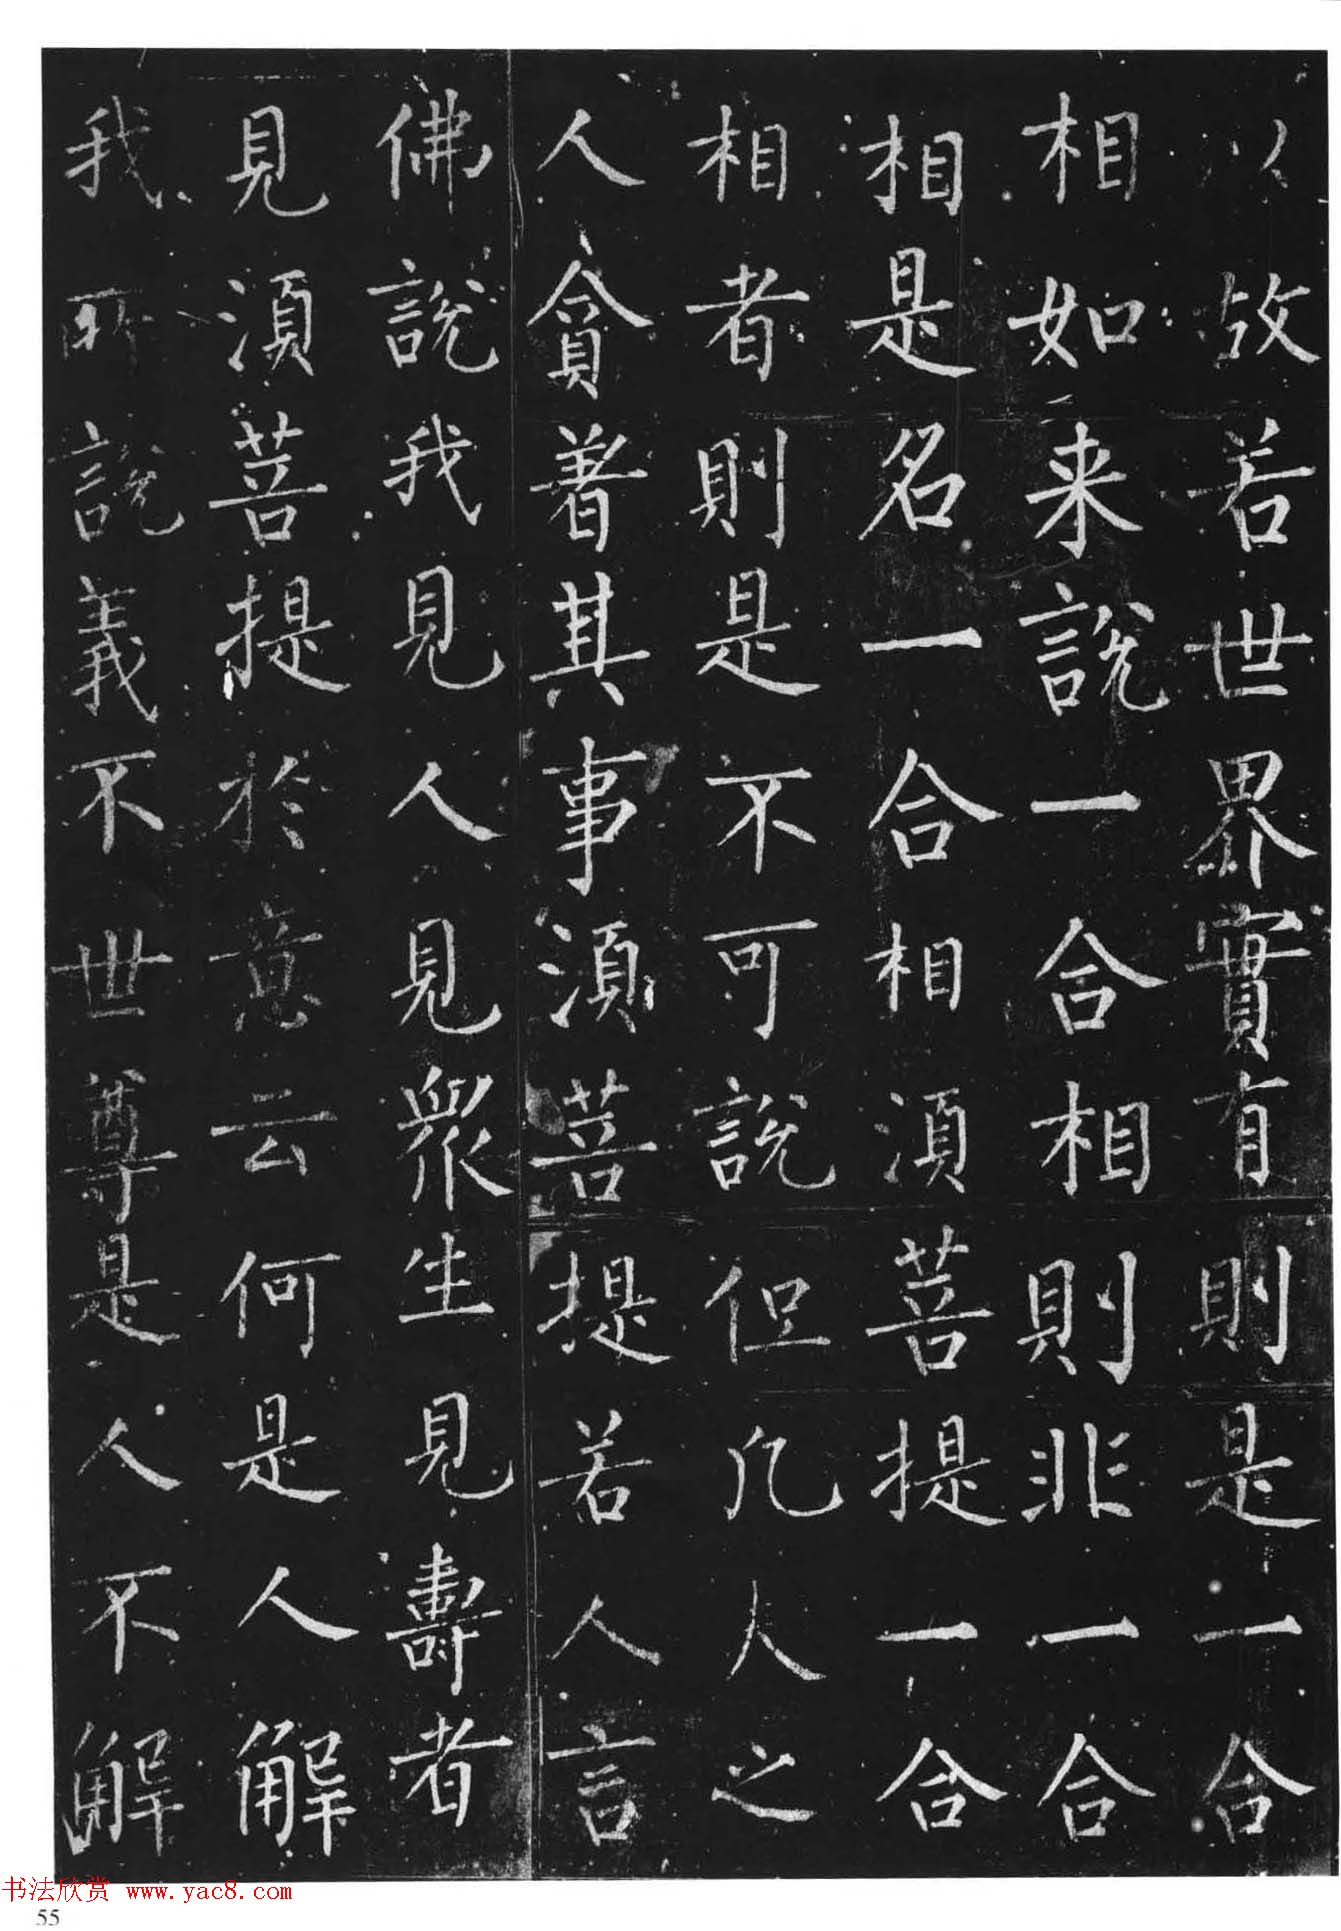 以故若世界實有則是一合
相如来說一合相則非一合
相是名一合相須菩提一合
相者則是不可說但凡人之
人貪著其事須菩提若人言
佛說我見人見眾生見壽者
見須菩提於意云何是人解
我所說義不世尊是人不解
书法欣赏 www.yac8.com
55